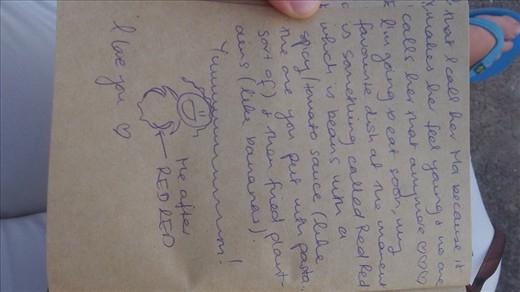 that I call her Ma because it
makes her feel young & no one
calls her that anymore ♡♡♡
I'm going to eat soon, my
favourite dish at the moment
is something called Red Red
which is beans with a
spicy/tomato sauce (like
the one you put with pasta
sort of) & then fried plant-
ains (like bananas).
Me after
RED RED
I love you ♡